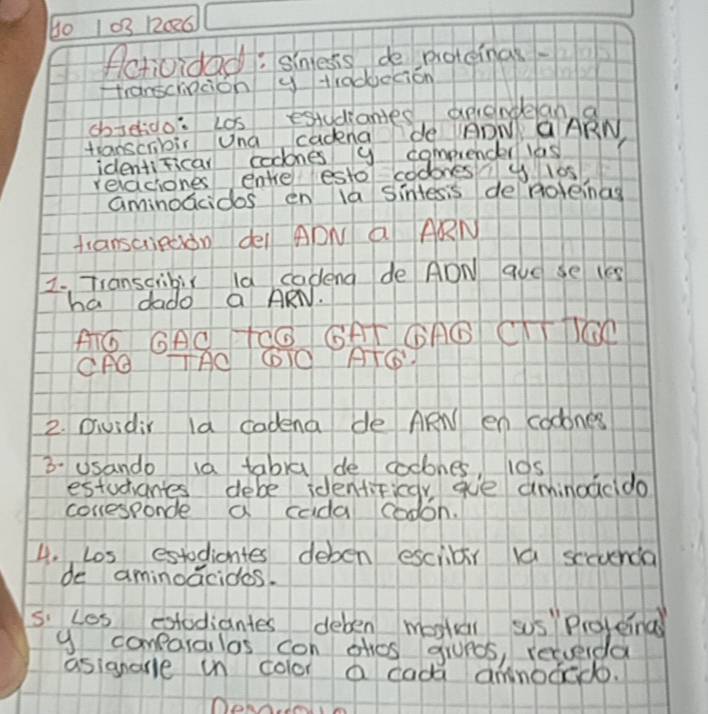 10 / 03 / 2026
Actividad: sintesis de proteinas -
transcripción y traducción
objetivo: Los estudiantes aprenderan a
transcribir Una cadena de ADN a ARN,
identificar codones y comprender las
relaciones entre esto codones y los
aminoácidos en la síntesis de proteinas
transcripción del ADN a ARN
1- Transcribir la cadena de ADN que se les
ha dado a ARN.
ATG GAC TCG GAT GAG CTT TGC
CAG TAC GTC ATG.
2. Dividir la cadena de ARN en codones
3. usando la tabla de codones, los
estudiantes debe identificar que aminoácido
corresponde a cada codón.
4. Los estudiantes deben escribir la secuencia
de aminoácidos.
5. Los estudiantes deben mostrar sus "Proteinas"
y compararlas con otros grupos, recuerda
asignarle un color a cada aminoácido.